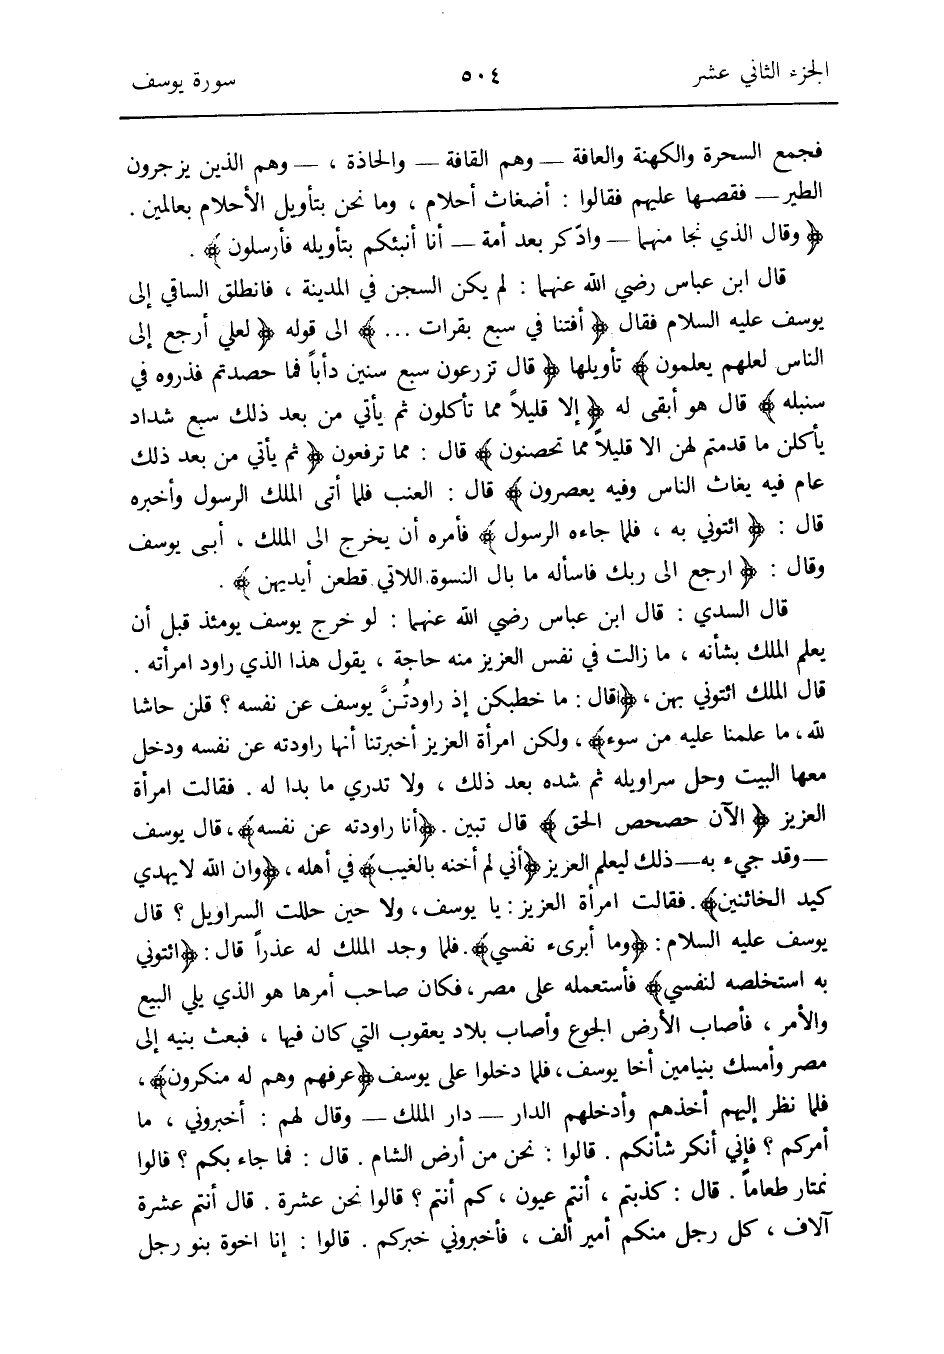 الجزء الثاني عشر
٥٠٤
سورة يوسف
فجمع السحرة والكهنة والعافة — وهم القافة — والحاذة ، — وهم الذين يزجرون
الطير — فقصها عليهم فقالوا : أضغاث أحلام ، وما نحن بتأويل الأحلام بعالمين .
﴿ وقال الذي نجا منهما — وادّكر بعد أمة — أنا أنبئكم بتأويله فأرسلون ﴾ .
قال ابن عباس رضي الله عنهما : لم يكن السجن في المدينة ، فانطلق الساقي إلى
يوسف عليه السلام فقال ﴿ أفتنا في سبع بقرات ... ﴾ الى قوله ﴿ لعلي أرجع إلى
الناس لعلهم يعلمون ﴾ تأويلها ﴿ قال تزرعون سبع سنين دأباً فما حصدتم فذروه في
سنبله ﴾ قال هو أبقى له ﴿ إلا قليلاً مما تأكلون ثم يأتي من بعد ذلك سبع شداد
يأكلن ما قدمتم لهن الا قليلاً مما تحصنون ﴾ قال : مما ترفعون ﴿ ثم يأتي من بعد ذلك
عام فيه يغاث الناس وفيه يعصرون ﴾ قال : العنب فلما أتى الملك الرسول وأخبره
قال : ﴿ ائتوني به ، فلما جاءه الرسول ﴾ فأمره أن يخرج الى الملك ، أبى يوسف
وقال : ﴿ ارجع الى ربك فاسأله ما بال النسوة اللاتي قطعن أيديهن ﴾ .
قال السدي : قال ابن عباس رضي الله عنهما : لو خرج يوسف يومئذ قبل أن
يعلم الملك بشأنه ، ما زالت في نفس العزيز منه حاجة ، يقول هذا الذي راود امرأته .
قال الملك ائتوني بهن ، ﴿اقال : ما خطبكن إذ راودتُنَّ يوسف عن نفسه ؟ قلن حاشا
لله ، ما علمنا عليه من سوء﴾ ، ولكن امرأة العزيز أخبرتنا أنها راودته عن نفسه ودخل
معها البيت وحل سراويله ثم شده بعد ذلك ، ولا تدري ما بدا له . فقالت امرأة
العزيز ﴿ الآن حصحص الحق ﴾ قال تبين . ﴿أنا راودته عن نفسه﴾ ، قال يوسف
—وقد جيء به— ذلك ليعلم العزيز ﴿أني لم أخنه بالغيب﴾ في أهله ، ﴿وان الله لا يهدي
كيد الخائنين﴾ . فقالت امرأة العزيز : يا يوسف ، ولا حين حللت السراويل ؟ قال
يوسف عليه السلام : ﴿وما أبرىء نفسي﴾ . فلما وجد الملك له عذراً قال : ﴿ائتوني
به استخلصه لنفسي﴾ فأستعمله على مصر ، فكان صاحب أمرها هو الذي يلي البيع
والأمر ، فأصاب الأرض الجوع وأصاب بلاد يعقوب التي كان فيها ، فبعث بنيه إلى
مصر وأمسك بنيامين أخا يوسف ، فلما دخلوا على يوسف ﴿عرفهم وهم له منكرون﴾ ،
فلما نظر إليهم أخذهم وأدخلهم الدار — دار الملك — وقال لهم : أخبروني ، ما
أمركم ؟ فإني أنكر شأنكم . قالوا : نحن من أرض الشام . قال : فما جاء بكم ؟ قالوا
نمتار طعاماً . قال : كذبتم ، أنتم عيون ، كم أنتم ؟ قالوا نحن عشرة . قال أنتم عشرة
آلاف ، كل رجل منكم أمير ألف ، فأخبروني خبركم . قالوا : إنا اخوة بنو رجل